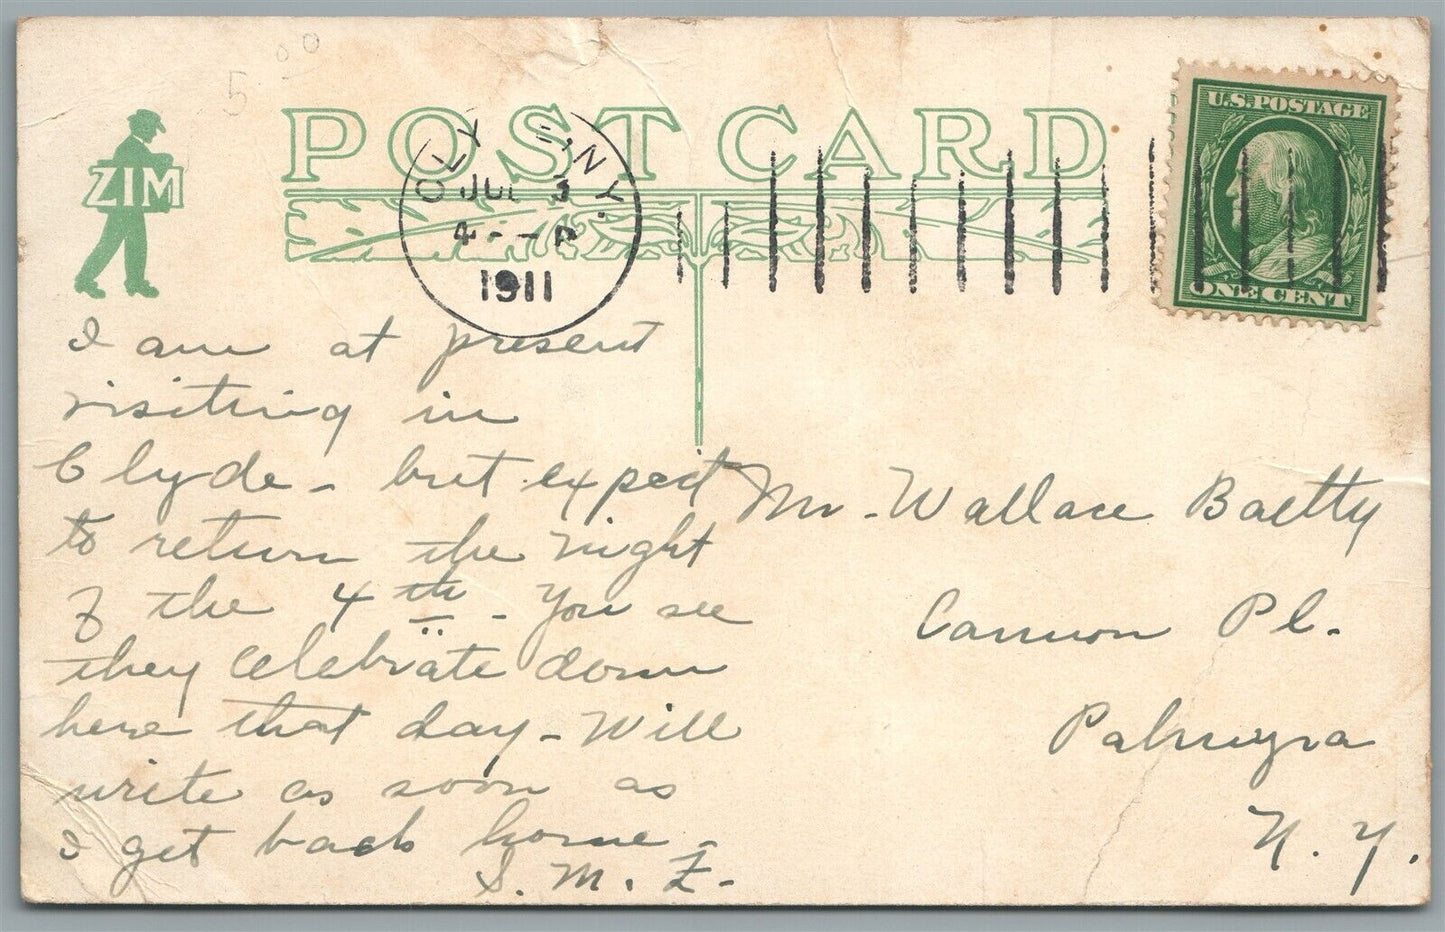 5 00
POST CARD
ZIM
CLYDE, N.Y.
JUL 3
4 - P
1911
U.S. POSTAGE
ONE CENT
I am at present
visiting in
Clyde - but expect
to return the night
of the 4th. You see
they celebrate down
here that day - Will
write as soon as
I get back home -
S. M. Z. -
Mr. Wallace Baetty
Cannon Pl.
Palmyra
N. Y.